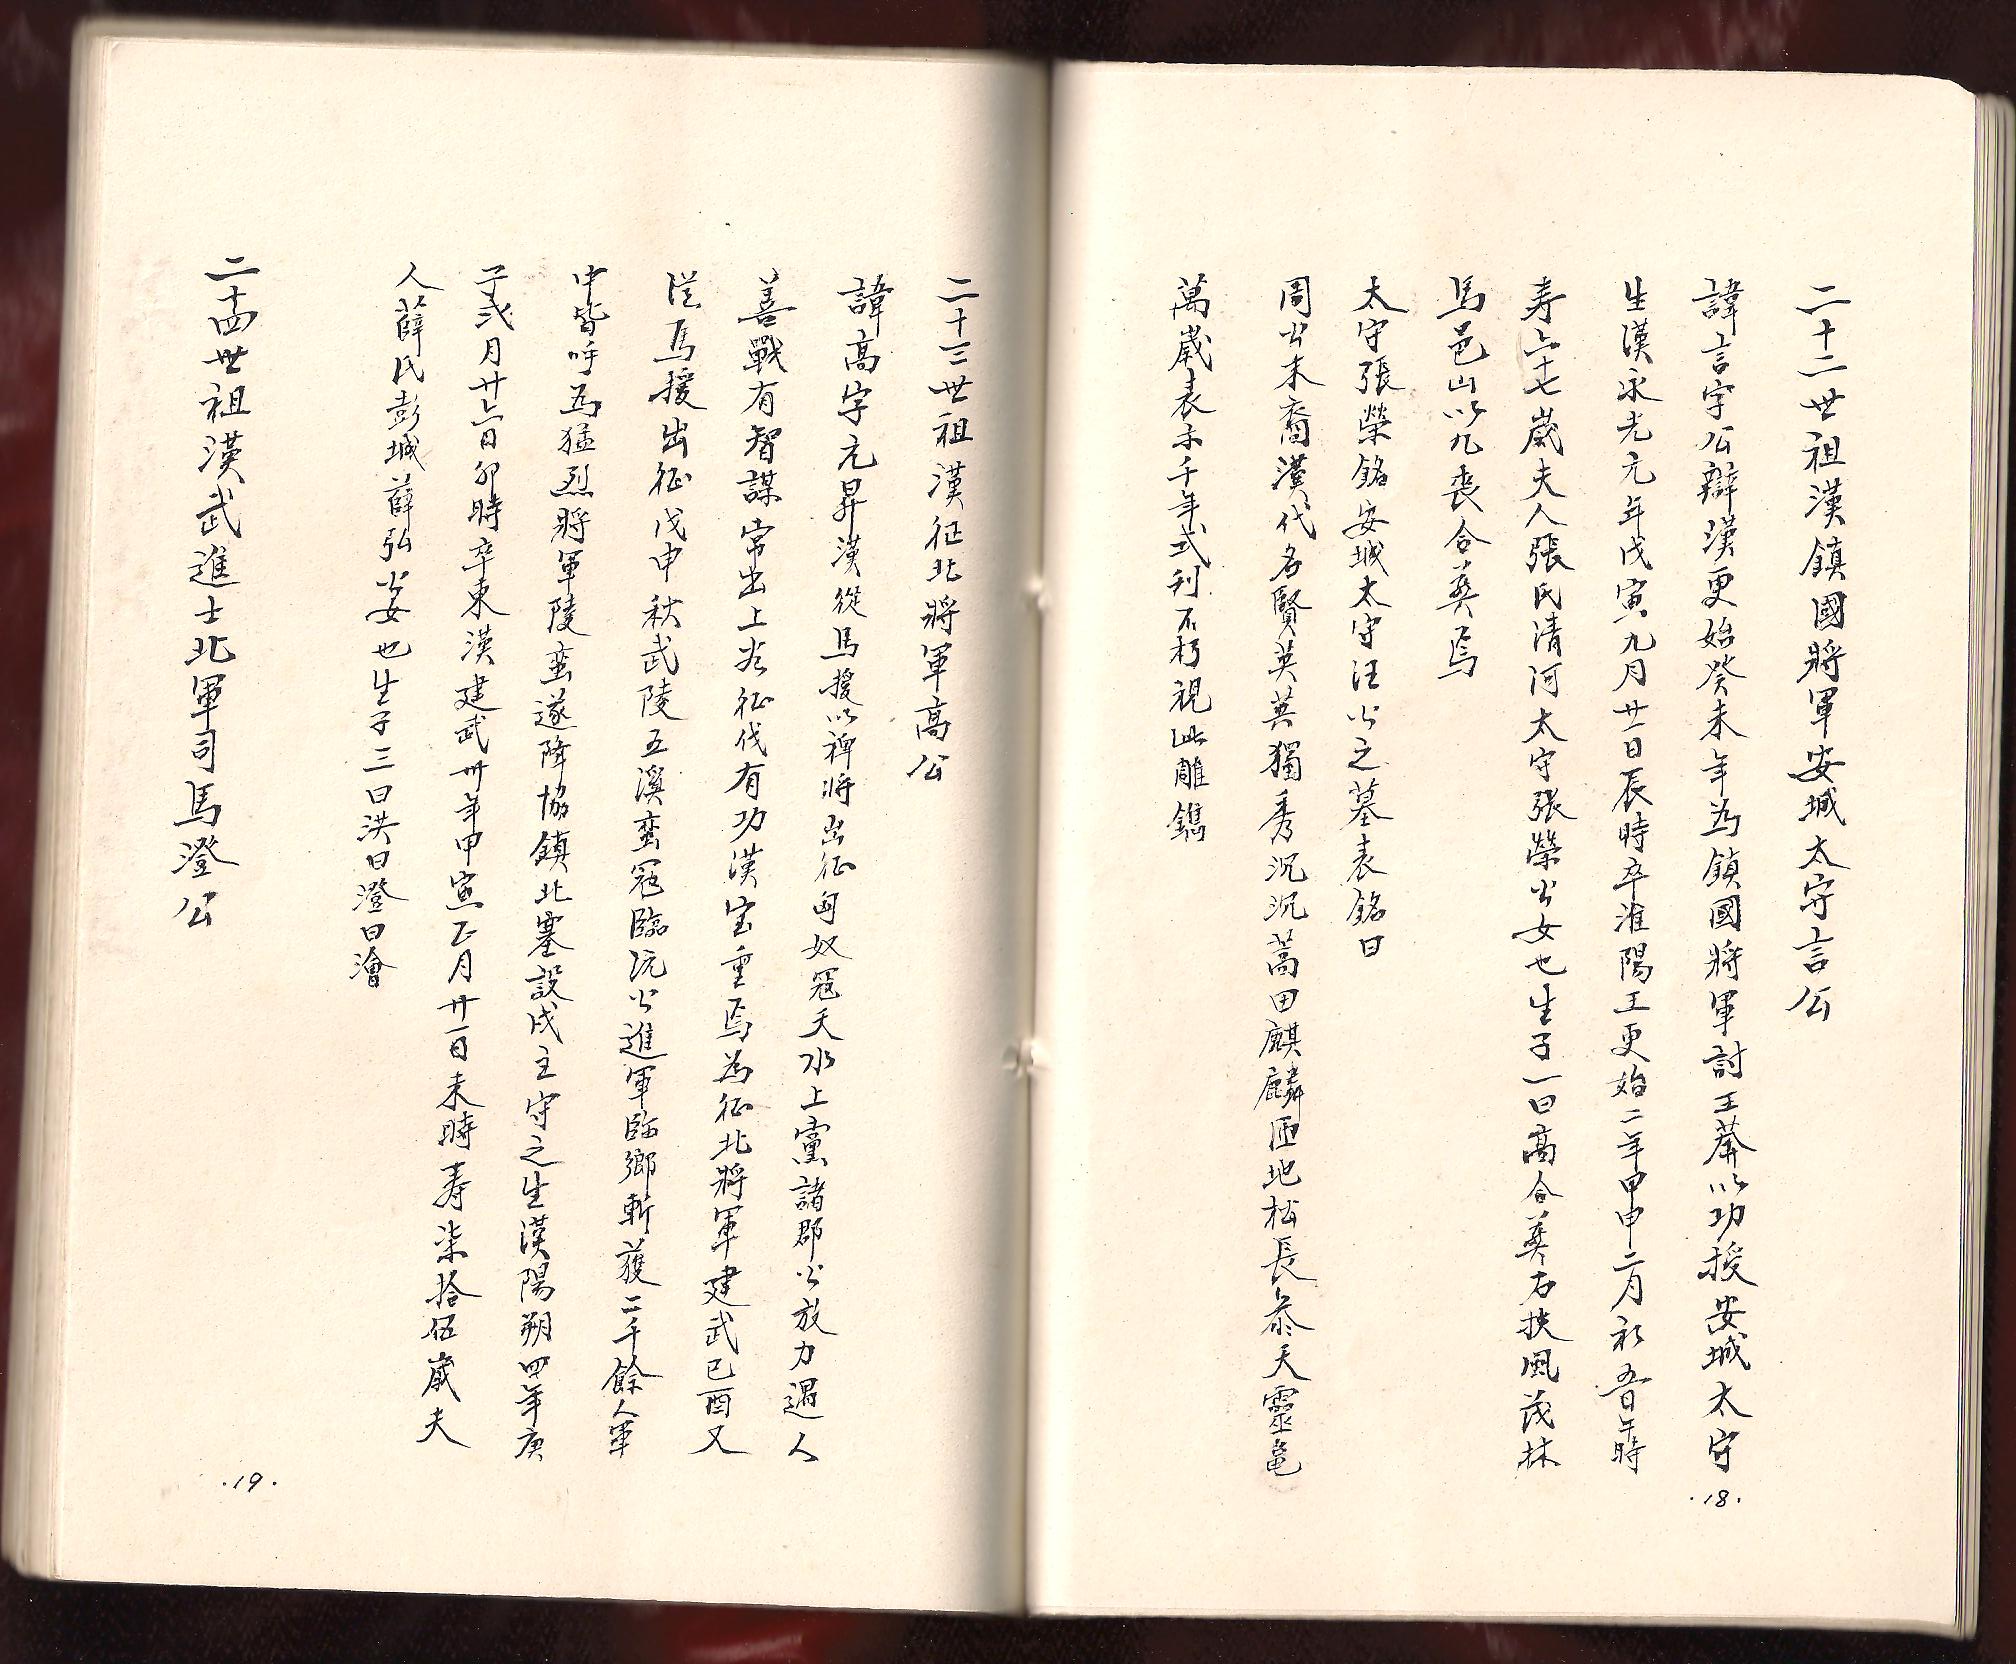 二十二世祖漢鎮國將軍安城太守言公
諱言字公辯漢更始癸未年為鎮國將軍討王莽以功授安城太守
生漢永光元年戊寅九月廿一日辰時卒淮陽王更始二年甲申二月初五日午時
寿六十七歲夫人張氏清河太守張榮公女也生子一曰高合葬右扶風茂林
馬邑山以九喪合葬焉
太守張榮銘安城太守汪公之墓表銘曰
周公末裔漢代名賢英英獨秀沉沉蒿田麒麟匝地松長泰天靈龟
萬歲表示千年式利不朽視此雕鐫
18
二十三世祖漢征北將軍高公
諱高字元昇漢從馬援以裨將出征匈奴冦天水上黨諸郡公放力過人
善戰有智謀常出上谷征伐有功漢室重焉為征北將軍建武己酉又
從馬援出征戊申秋武陵五溪蛮冦臨沅公進軍臨鄉斬獲二千餘人軍
中皆呼為猛烈將軍陵蛮遂降協鎮北塞設戍主守之生漢陽朔四年庚
子弍月廿六日卯時卒東漢建武卅年甲寅正月廿一日未時寿柒拾伍歲夫
人薛氏彭城薛弘公女也生子三曰洪曰澄曰澮
二十四世祖漢武進士北軍司馬澄公
19